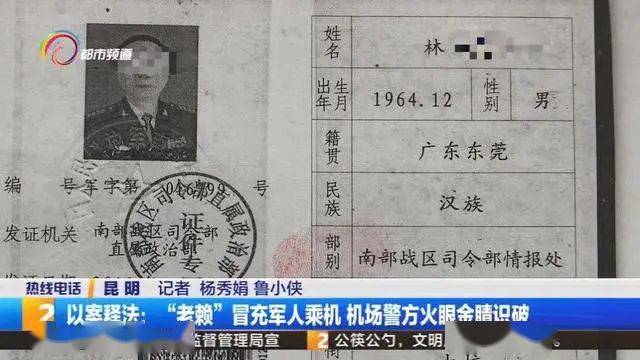 都市频道
姓名 林
出生年月 1964.12 性别 男
籍贯 广东东莞
民族 汉族
部别 南部战区司令部情报处
编 号 军字第 016799 号
发证机关 南部战区司令部
直属政治部
南部战区司令部直属政治部
证件专
热线电话 昆明 记者 杨秀娟 鲁小侠
2 以案释法：“老赖”冒充军人乘机 机场警方火眼金睛识破
监督管理局宣
2 公筷公勺，文明